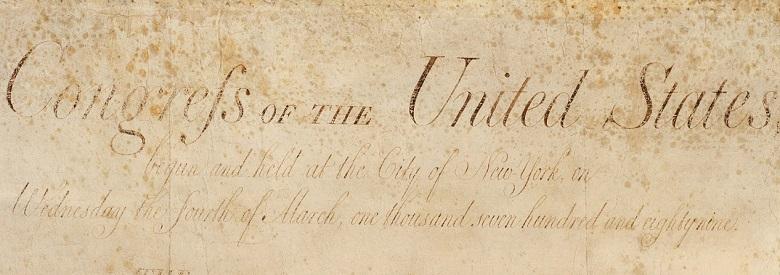 Congreſs OF THE United States,
begun and held at the City of New York, on
Wednesday the fourth of March, one thousand seven hundred and eighty nine.